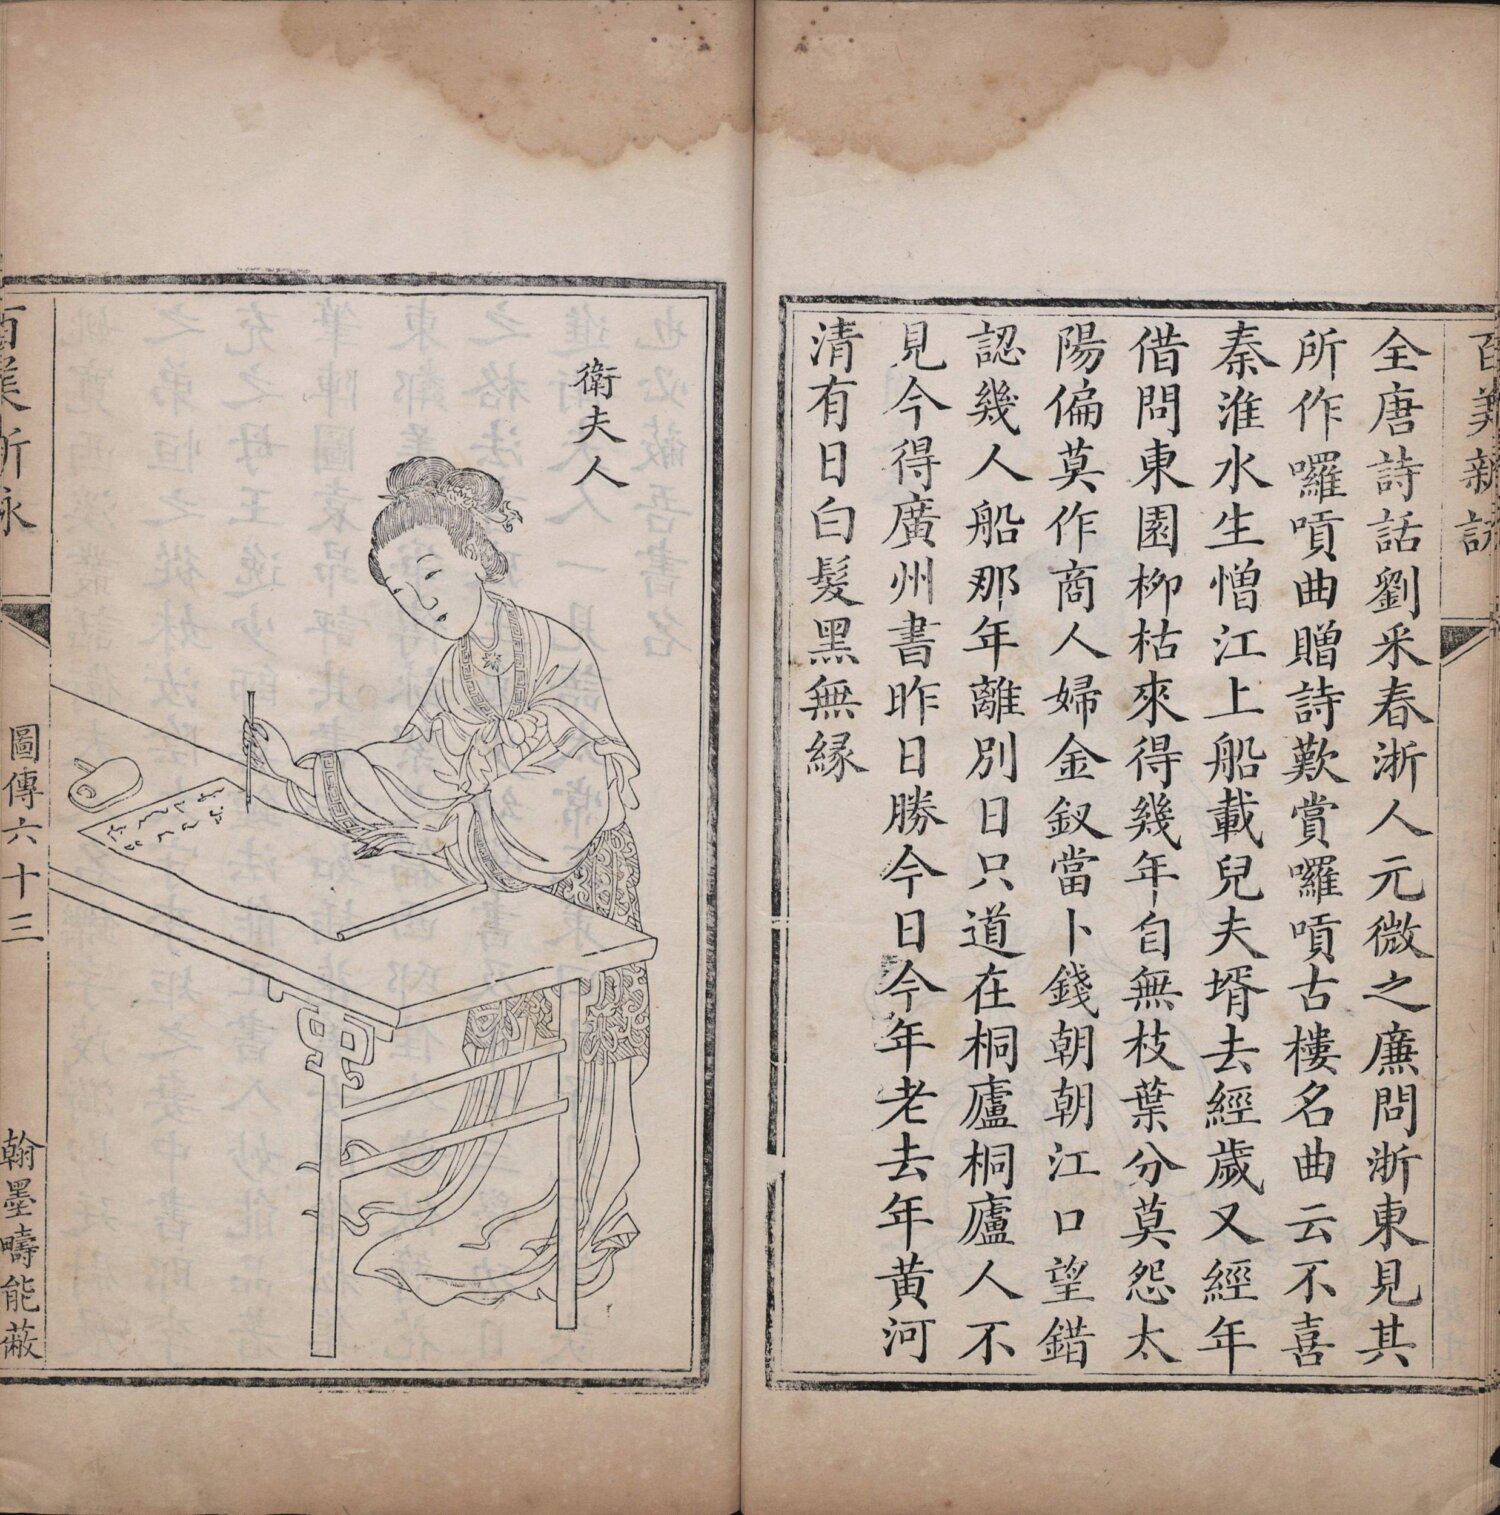 百美新詠
全唐詩話劉采春浙人元微之廉問浙東見其
所作囉嗊曲贈詩歎賞囉嗊古樓名曲云不喜
秦淮水生憎江上船載兒夫壻去經歲又經年
借問東園柳枯來得幾年自無枝葉分莫怨太
陽偏莫作商人婦金釵當卜錢朝朝江口望錯
認幾人船那年離別日只道在桐廬桐廬人不
見今得廣州書昨日勝今日今年老去年黄河
清有日白髮黑無緣
衛夫人
百美新詠
圖傳六十三
翰墨疇能蔽